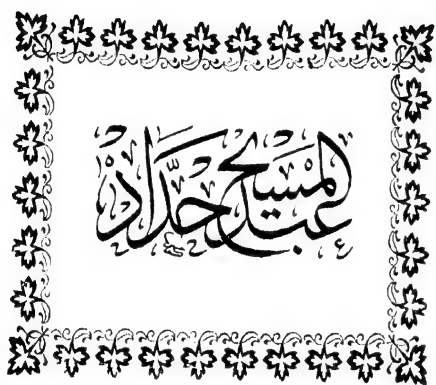 عبد المسيح حدّاد